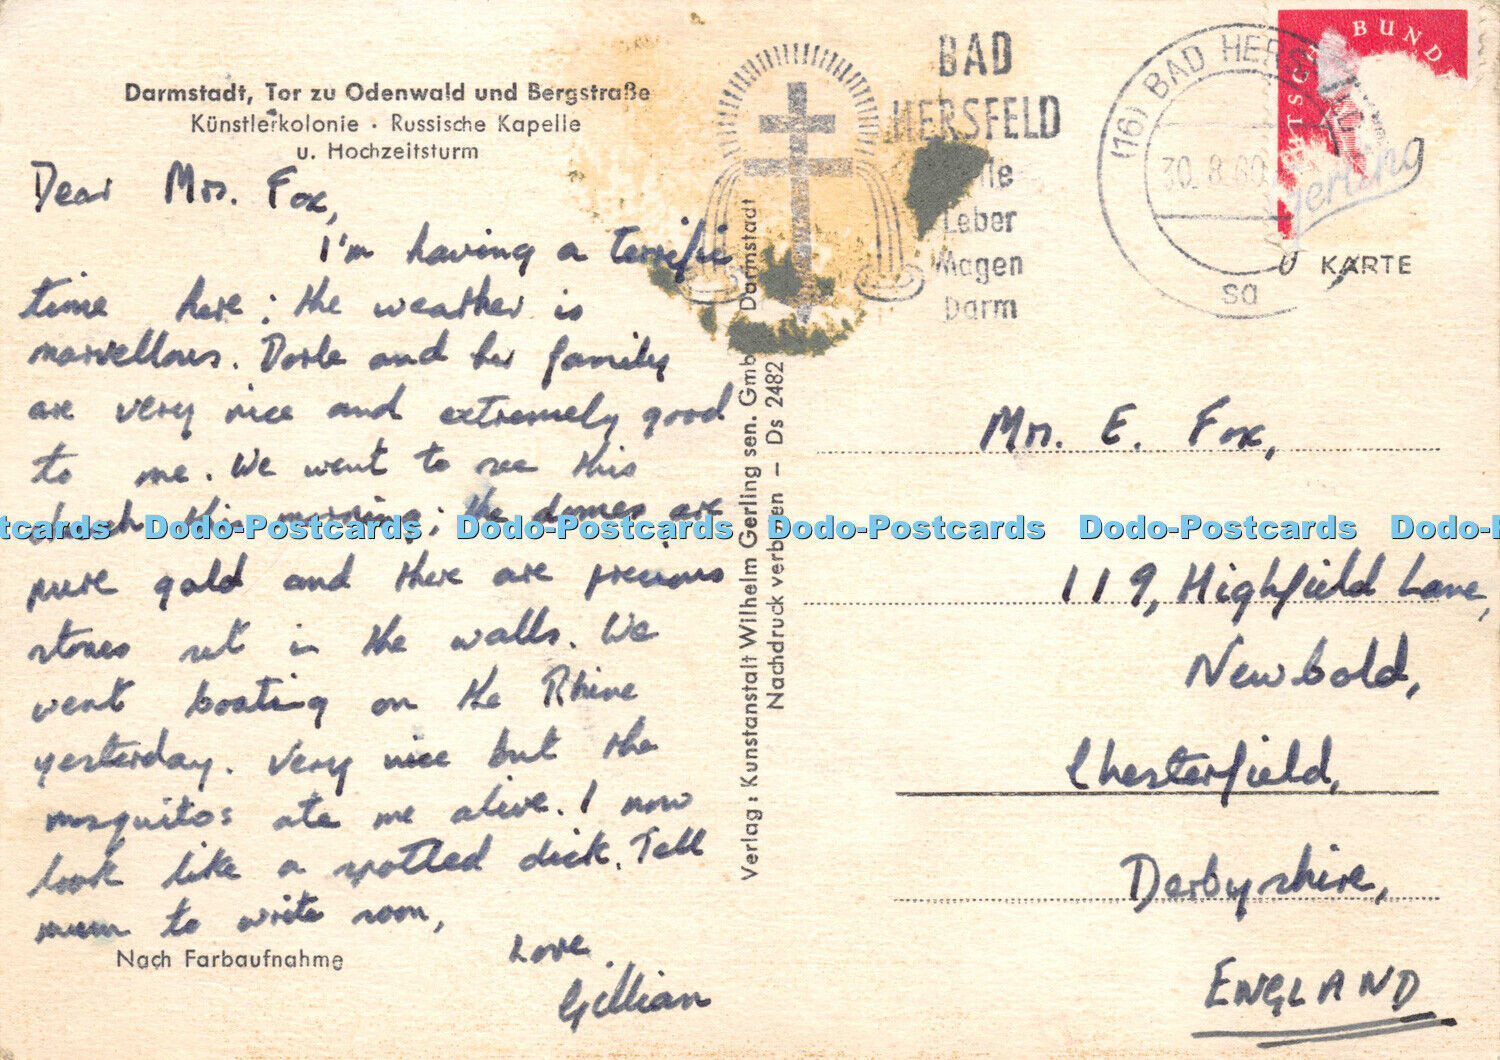 Darmstadt, Tor zu Odenwald und Bergstraße
Künstlerkolonie · Russische Kapelle
u. Hochzeitsturm
Dear Mrs. Fox,
I'm having a terrific
time here; the weather is
marvellous. Dorle and her family
are very nice and extremely good
to me. We went to see this
church this morning; the domes are
pure gold and there are precious
stones set in the walls. We
went boating on the Rhine
yesterday. Very nice but the
mosquitos ate me alive. I now
look like a spotted dick. Tell
mum to write soon,
Love
Gillian
Nach Farbaufnahme
Verlag: Kunstanstalt Wilhelm Gerling sen. Gmb Darmstadt
Nachdruck verboten – Ds 2482
BAD
HERSFELD
Leber
Magen
Darm
(16) BAD HERSFELD
30.8.60
sa
TSCHE BUND
Gerling
KARTE
Mrs. E. Fox,
119, Highfield Lane,
Newbold,
Chesterfield,
Derbyshire,
ENGLAND
tcards Dodo-Postcards Dodo-Postcards Dodo-Postcards Dodo-Postcards Dodo-P